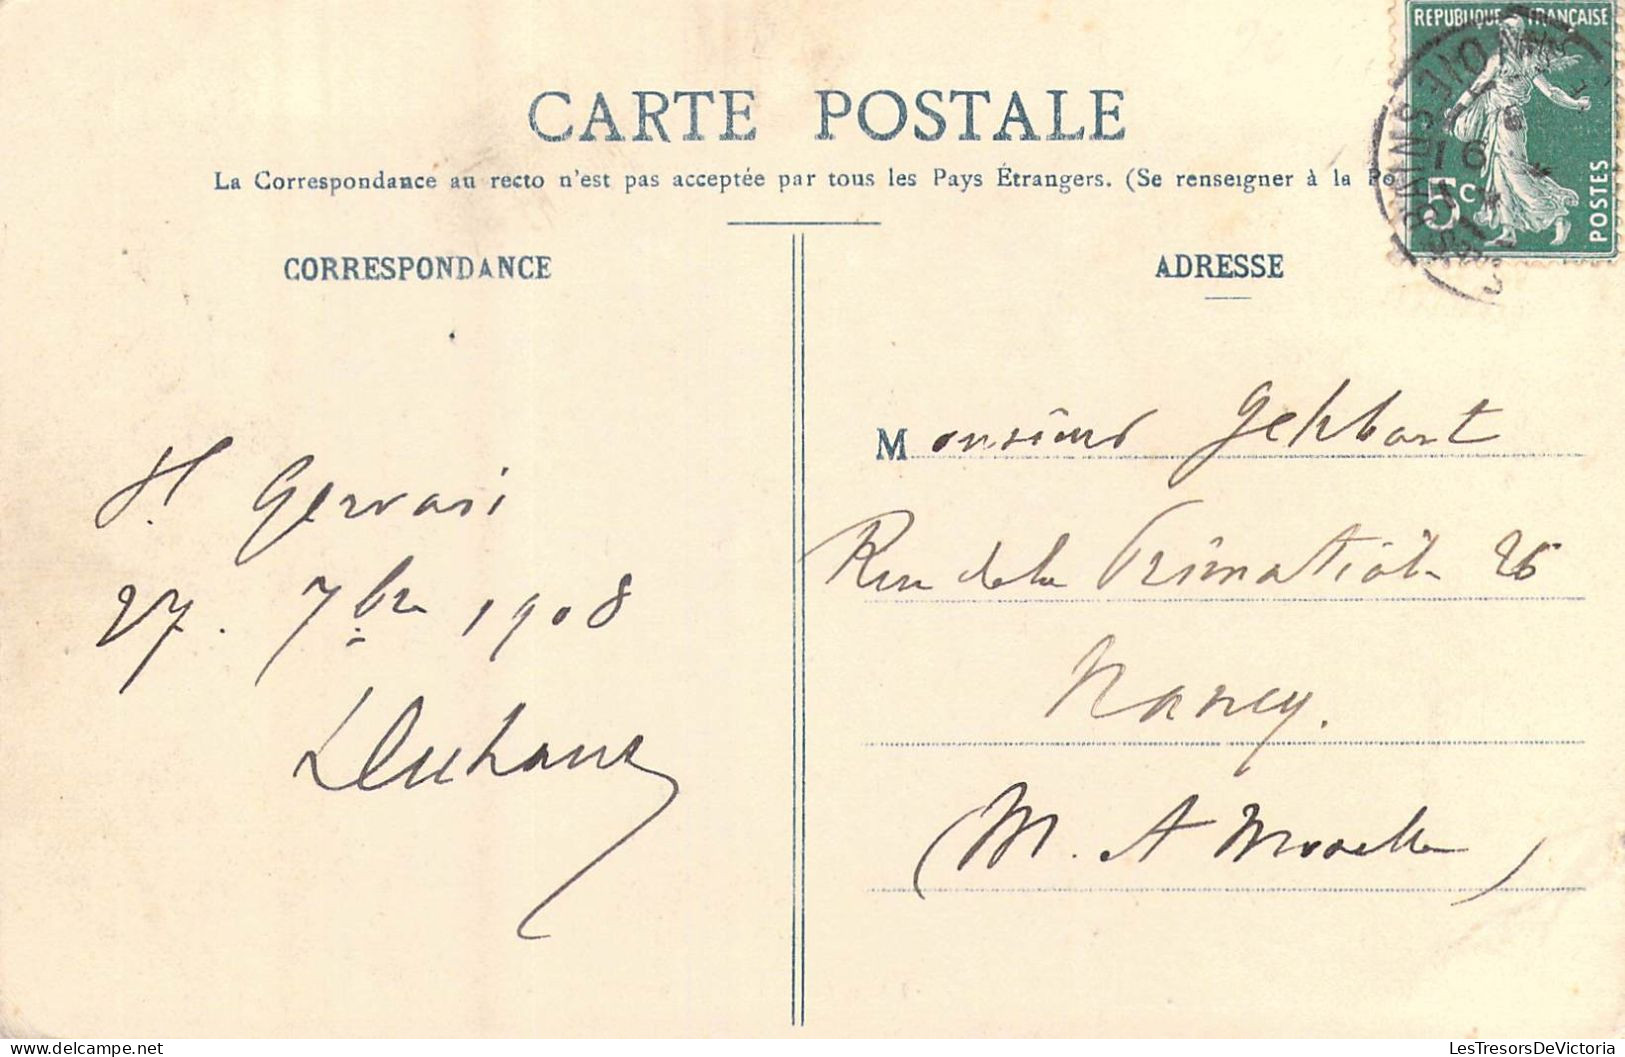 RÉPUBLIQUE FRANÇAISE
5 c
POSTES
CARTE POSTALE
La Correspondance au recto n'est pas acceptée par tous les Pays Étrangers. (Se renseigner à la Po
CORRESPONDANCE
ADRESSE
St Gervais
27. 7bre 1908
Monsieur Gehbart
Rue de la Primatiale 26
Nancy.
(M. et Moselle)
LesTresorsDeVictoria